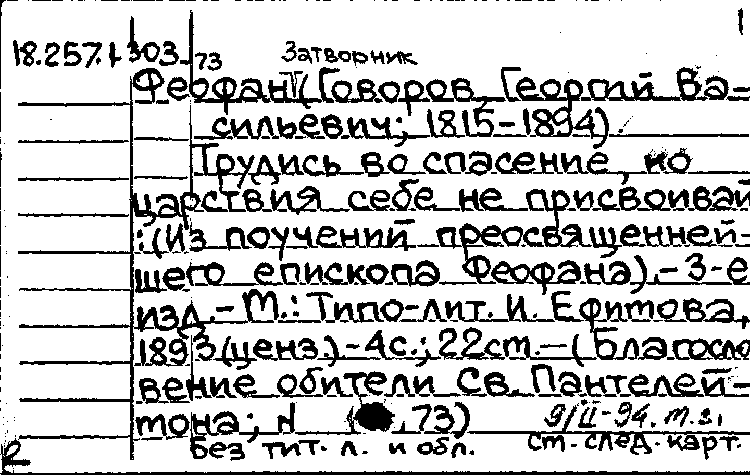 1
18.257.1.303.73 Затворник
Феофан (Говоров, Георгий Ва-
сильевич; 1815-1894).
Трудись во спасение, но
царствия себе не присвоивай
: (Из поучений преосвященней-
шего епископа Феофана). - 3-е
изд. - М.: Типо-лит. И. Ефимова,
1893 (ценз.) - 4с.; 22см. - (Благосло-
вение обители Св. Пантелей-
мона; N ( , 73)
9/II-94. м.г.
Без тит. л. и обл. см. след. карт.